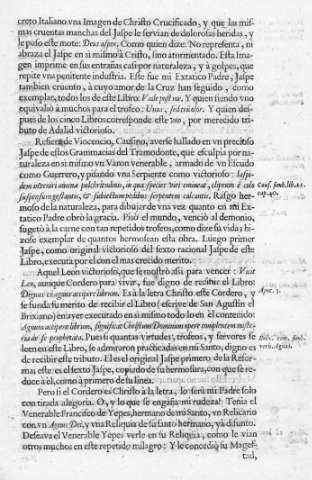 creto Italiano vna Imagen de Christo Crucificado, y que las mis-
mas cruentas manchas del Jaspe le servian de dolorosas heridas, y
le puso este mote: Deus asper. Como quien dize: No representa, ni
abraza el Jaspe en si mismo à Cristo, sino atormentado. Esta Ima-
gen imprime en sus entrañas casi por naturaleza, y à golpes, que
repite vna penitente industria. Este fue mi Extatico Padre, Jaspe
tambien cruento, à cuyo amor de la Cruz han seguido, como
exemplar, todos los de este Libro: Y siendo vno
equivaliò à muchos para el trofeo: Vnus, sed Y quien des-
pues de los cinco Libros corresponde este por merecido tri-
buto de Adalid victorioso.
Refiere de Viocencio, Causino, averse hallado en vn precioso
Jaspe de estos Gramacias del Tramodonte, que esculpia por na-
turaleza en si mismo vn Varon venerable, armado de vn Escudo
como Guerrero, y pisando vna Serpiente como victorioso: Iaspi-
dem
suspensum gestante, & subiectum pedibus serpentem calcante. Rasgo her-
moso de la naturaleza, para dibujar de vna vez quanto en mi Ex-
tatico Padre obrò la gracia. Pisò el mundo, venciò al demonio,
sugetò la carne con tan repetidos trofeos, como dize su vida; hi-
zose exemplar de quantos hermosean esta obra. Luego primer
Jaspe, como original victorioso del sexto racional Jaspe de este
Libro, executa por el con el mas crecido merito.
Aquel Leon victorioso, que se mostrò assi para vencer: Vicit
Leo, aunque Cordero para vivir, fue digno de recibir el Libro:
Dignus es agnus accipere librum. Es à la letra Christo este Cordero, y
se funda su merito de recibir el Libro (escrive de San Agustin el
Brixiano) en aver executado en si mismo todo lo en él contenido:
Agnum accipere librum, significat Christum Dominum opere complentem myste-
ria de se prophetata. Pues si quantas virtudes, trofeos, y fervores se
leen en este Libro, se admiraron practicadas en mi Santo, digno es
de recibir este tributo. El es el original Jaspe primero de la Refor-
ma; este es el sexto Jaspe, copiado de su hermosura, con que se re-
duce à èl, como à primero de su linea.
Pero si el Cordero es Christo à la letra, lo serà mi Padre solo
con tirada alegoria. O, y lo que se engaña mi rudeza! Tenia el
Venerable Francisco de Yepes, hermano de mi Santo, vn Relicario
con vn Agnus Dei, y vna Reliquia de su santo hermano, yà difunto.
Deseava el Venerable Yepes verle en su Reliquia, como le vian
otros muchos en este repetido milagro: Y le concediò su Magef-
tad,
Cauf. lib. 11.
cap. 40.
Apoc. 5.